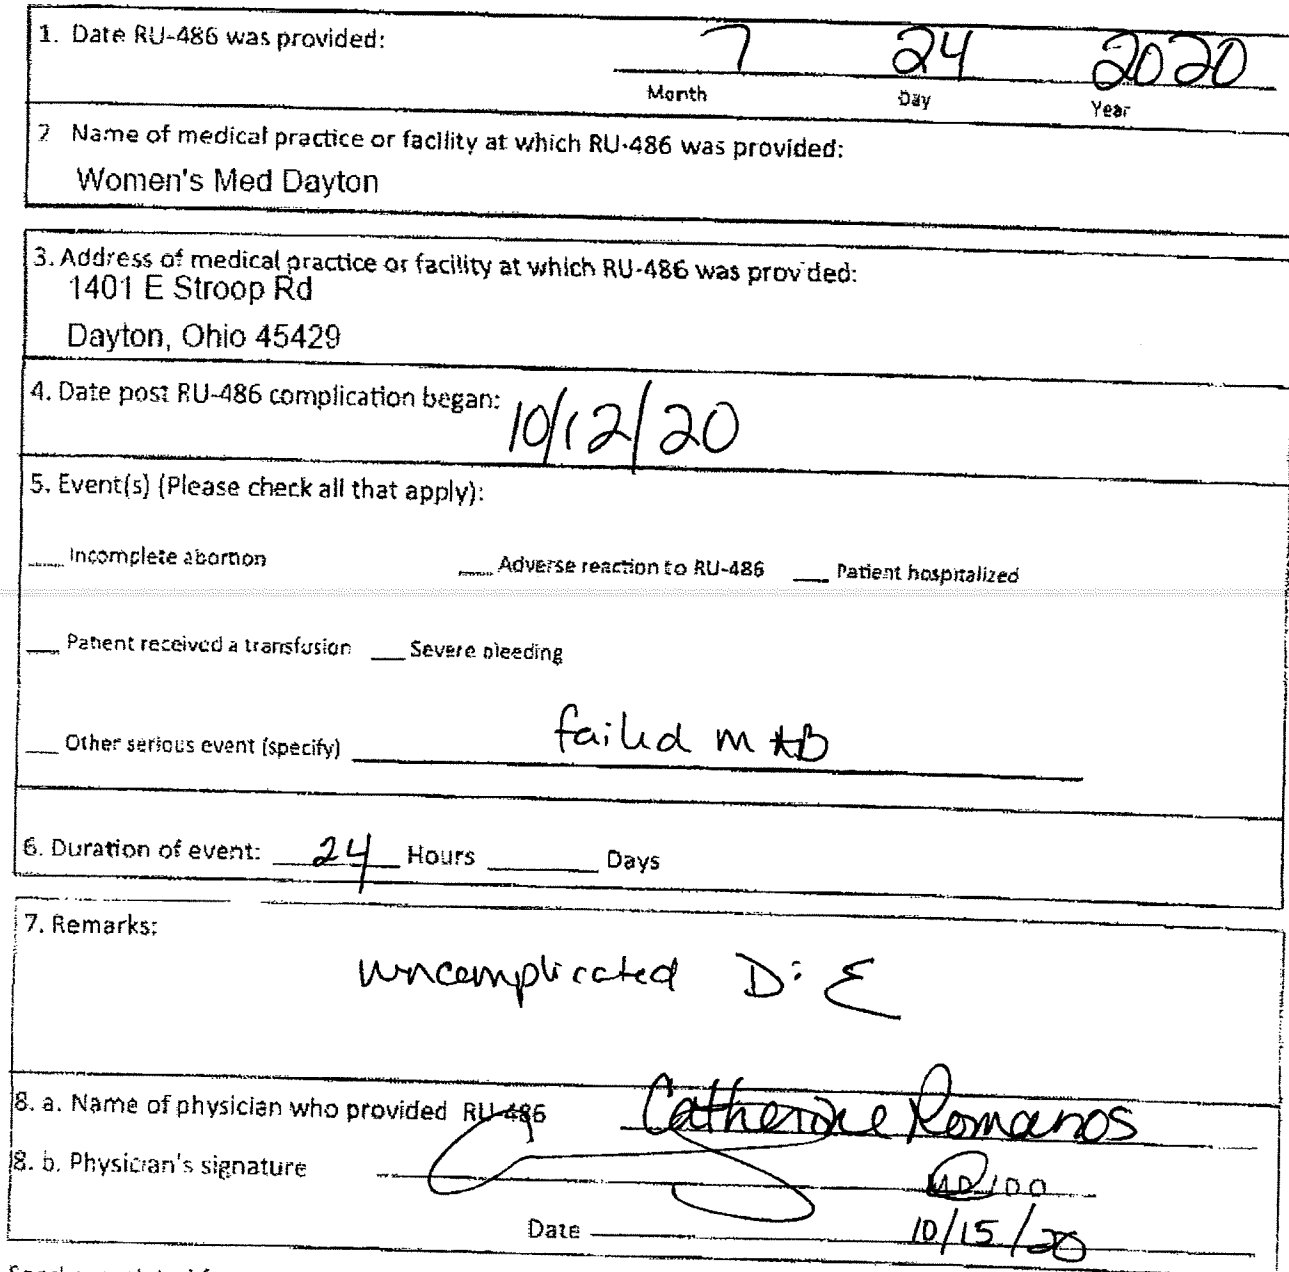 1. Date RU-486 was provided: 7 24 2020
Month Day Year
2 Name of medical practice or facility at which RU-486 was provided:
Women's Med Dayton
3. Address of medical practice or facility at which RU-486 was provided:
1401 E Stroop Rd
Dayton, Ohio 45429
4. Date post RU-486 complication began: 10/12/20
5. Event(s) (Please check all that apply):
__ Incomplete abortion __ Adverse reaction to RU-486 __ Patient hospitalized
__ Patient received a transfusion __ Severe bleeding
__ Other serious event (specify) failed m tAB
6. Duration of event: 24 Hours ____ Days
7. Remarks:
uncomplicated D:E
8. a. Name of physician who provided RU-486 Catherine Romanos
8. b. Physician's signature MD/DO
Date 10/15/20